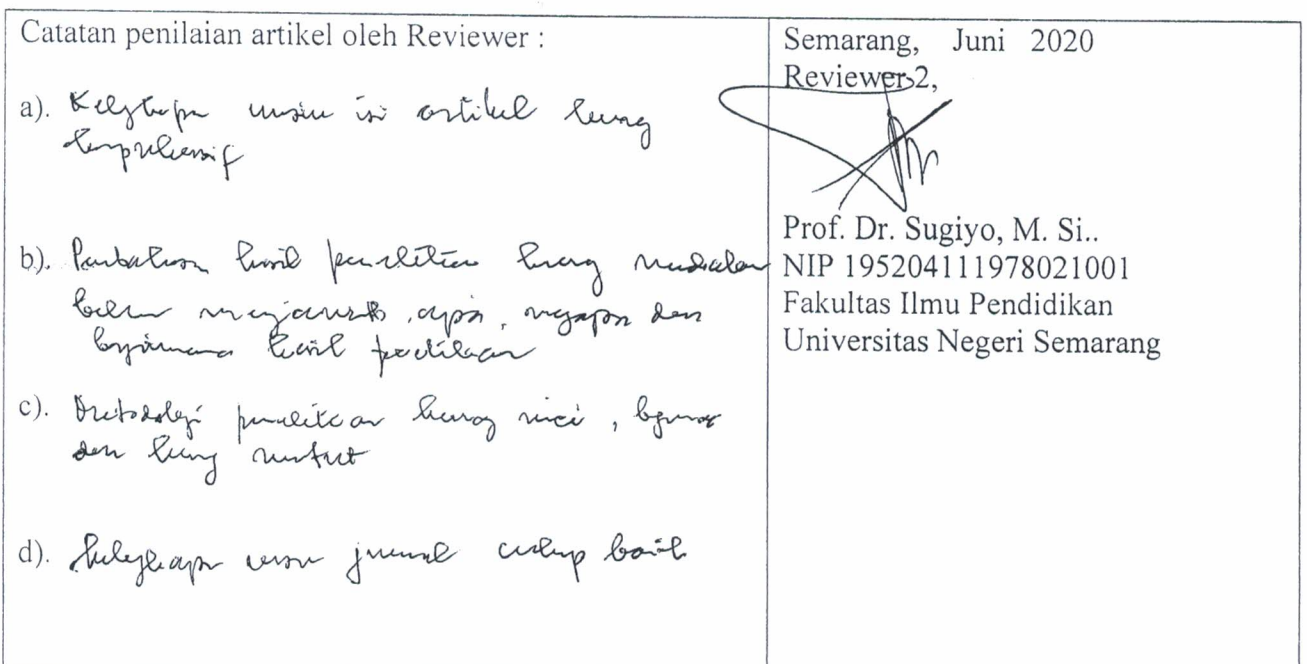 Catatan penilaian artikel oleh Reviewer :
a). Kelengkapan unsur isi artikel kurang
komprehensif
b). Pembahasan hasil penelitian kurang
belum menjawab apa, mengapa dan
bagaimana hasil penelitian
c). Metodologi penelitian kurang rinci,
dan kurang
d). Kelengkapan unsur jurnal cukup baik
Semarang, Juni 2020
Reviewer 2,
Prof. Dr. Sugiyo, M. Si..
NIP 195204111978021001
Fakultas Ilmu Pendidikan
Universitas Negeri Semarang